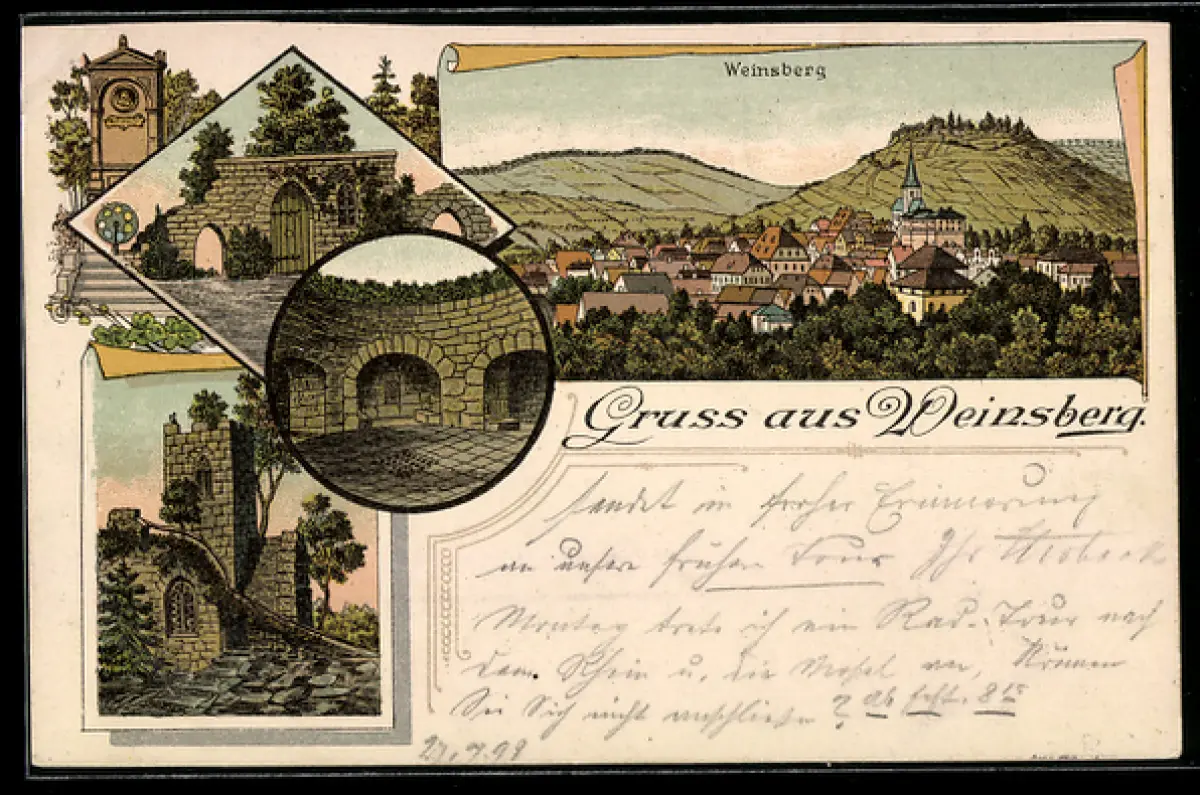 Weinsberg
Gruss aus Weinsberg.
sendet in froher Erinnerung
an unsere frühere Tour Ihr
Montag trete ich ein Rad-Tour nach
dem Rhein u. die Mosel an, Können
Sie Sich nicht anschließen? ab 8 15
27.7.99